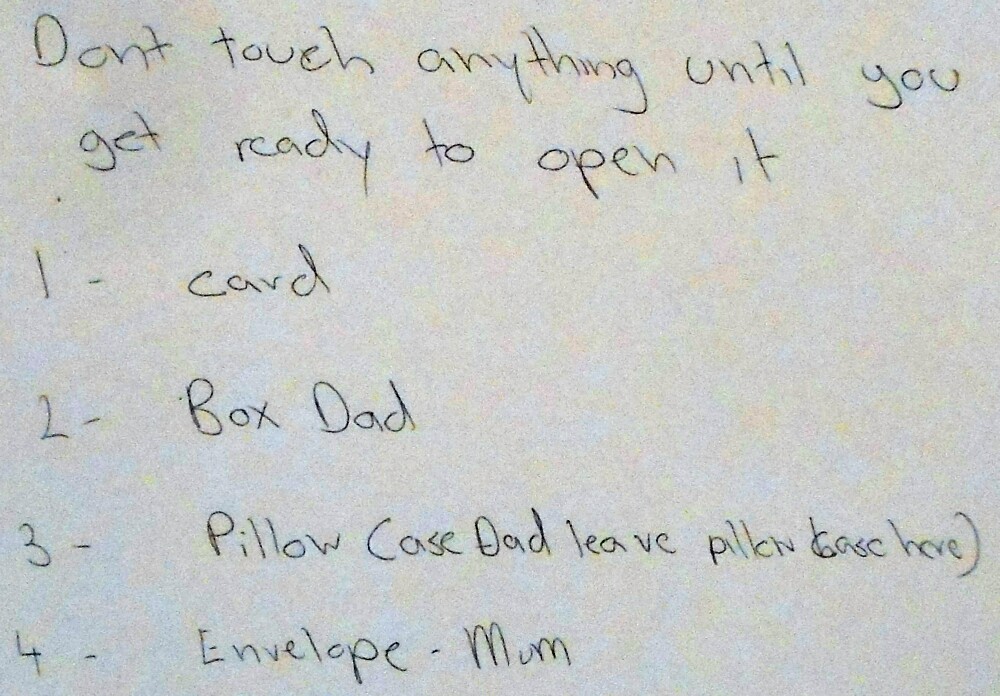 Dont touch anything until you
get ready to open it
1 - card
2 - Box Dad
3 - Pillow Case Dad leave pillow case here)
4 - Envelope - Mum